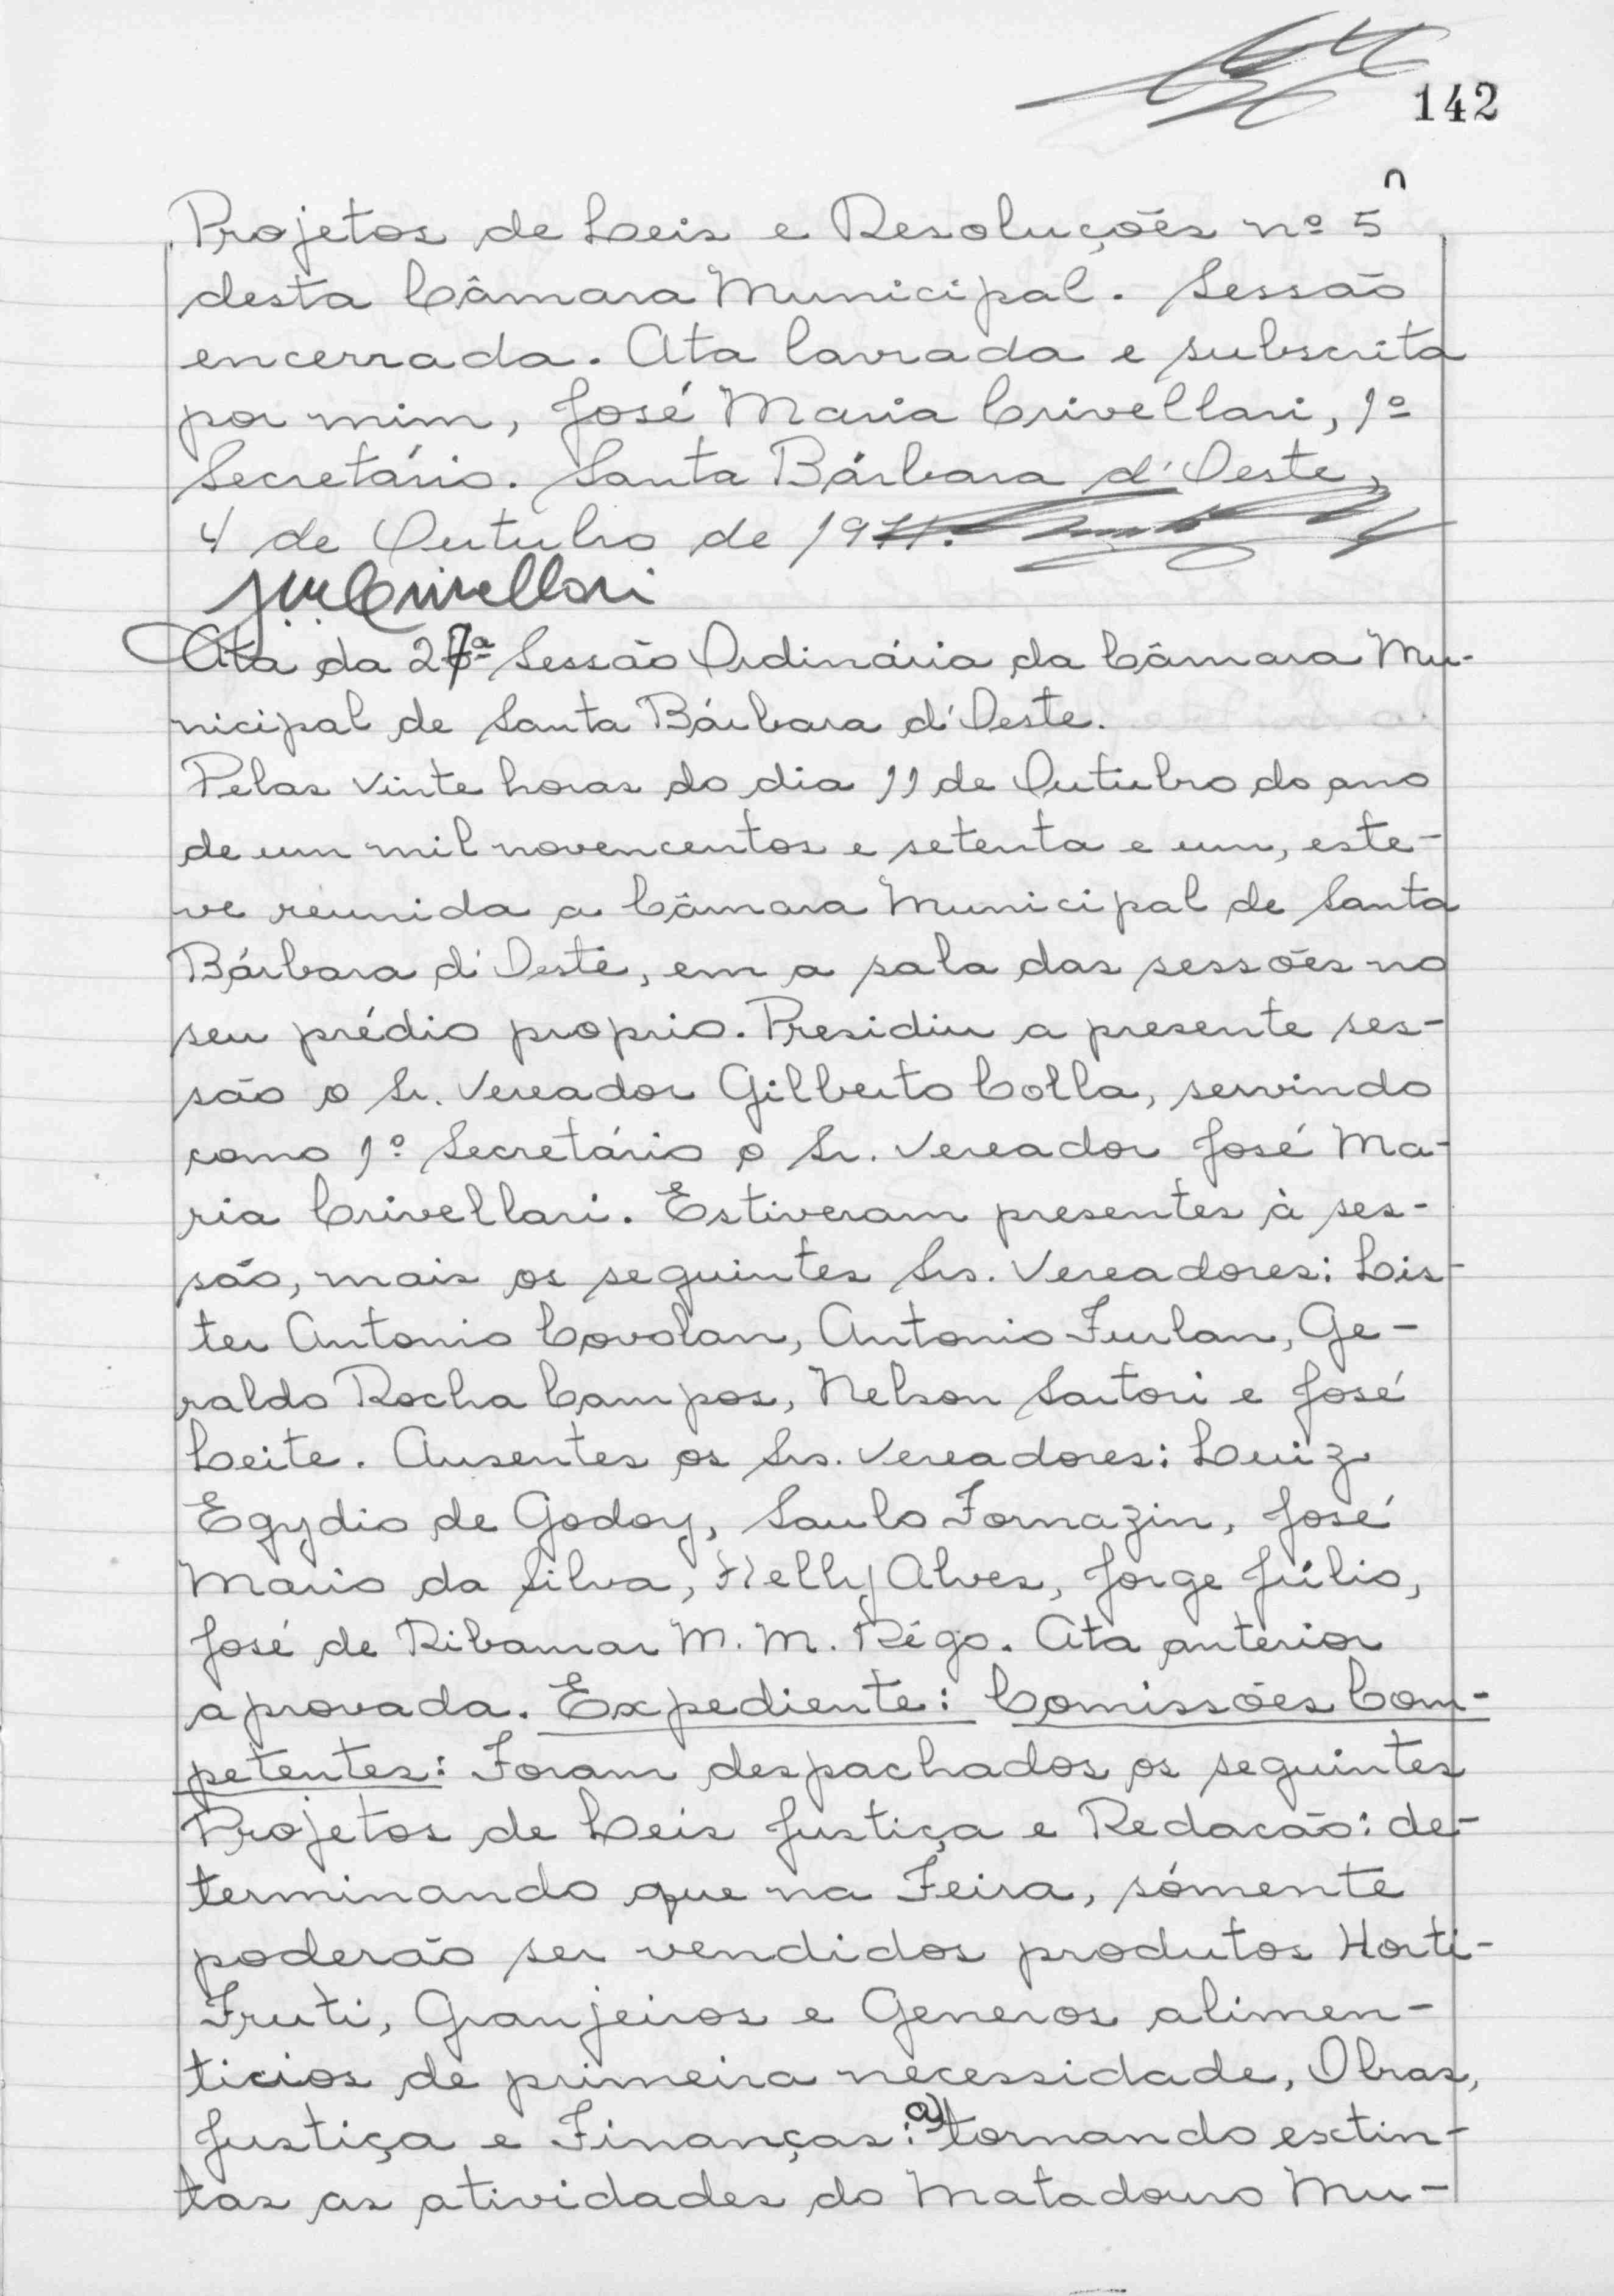 142
Projetos de Leis e Resoluções nº 5
desta Câmara Municipal. Sessão
encerrada. Ata lavrada e subscrita
por mim, José Maria Crivellari, 1º
Secretário. Santa Bárbara d'Oeste,
4 de Outubro de 1971.
J.M. Crivellari
Ata da 27ª Sessão Ordinária da Câmara Mu-
nicipal de Santa Bárbara d'Oeste.
Pelas vinte horas do dia 11 de Outubro do ano
de um mil novencentos e setenta e um, este-
ve reunida a Câmara Municipal de Santa
Bárbara d'Oeste, em a sala das sessões no
seu prédio proprio. Presidiu a presente ses-
são o Sr. Vereador Gilberto Colla, servindo
como 1º Secretário o Sr. Vereador José Ma-
ria Crivellari. Estiveram presentes à ses-
são, mais os seguintes Srs. Vereadores: Lis-
ter Antonio Covolan, Antonio Furlan, Ge-
raldo Rocha Campos, Nelson Sartori e José
Leite. Ausentes os Srs. Vereadores: Luiz
Egydio de Godoy, Saulo Fornazin, José
Mario da Silva, Nelly Alves, Jorge Júlio,
José de Ribamar M. M. Rêgo. Ata anterior
aprovada. Expediente: Comissões Com-
petentes: Foram despachados os seguintes
Projetos de Leis Justiça e Redacão: de-
terminando que na Feira, sómente
poderão ser vendidos produtos Horti-
Fruti, Granjeiros e Generos alimen-
ticios de primeira necessidade, Obras,
Justiça e Finanças: a) tornando extin-
tas as atividades do Matadouro Mu-